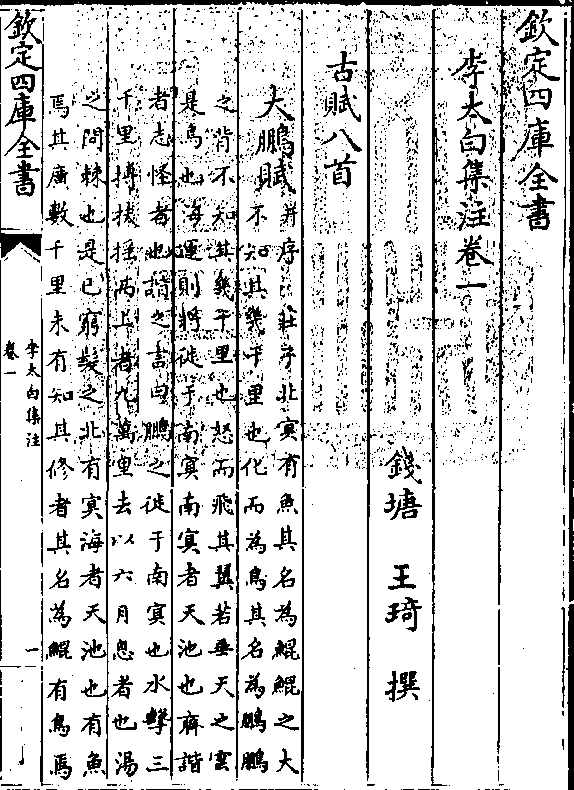 欽定四庫全書
李太白集注卷一
錢塘 王琦 撰
古賦八首
大鵬賦并序
莊子北冥有魚其名為鯤鯤之大
不知其幾千里也化而為鳥其名為鵬鵬
之背不知其幾千里也怒而飛其翼若垂天之雲
是鳥也海運則將徙于南冥南冥者天池也齊諧
者志怪者也諧之言曰鵬之徙于南冥也水擊三
千里摶扶搖而上者九萬里去以六月息者也湯
之問棘也是已窮髮之北有冥海者天池也有魚
焉其廣數千里未有知其修者其名為鯤有鳥焉
欽定四庫全書
李太白集注
卷一
一